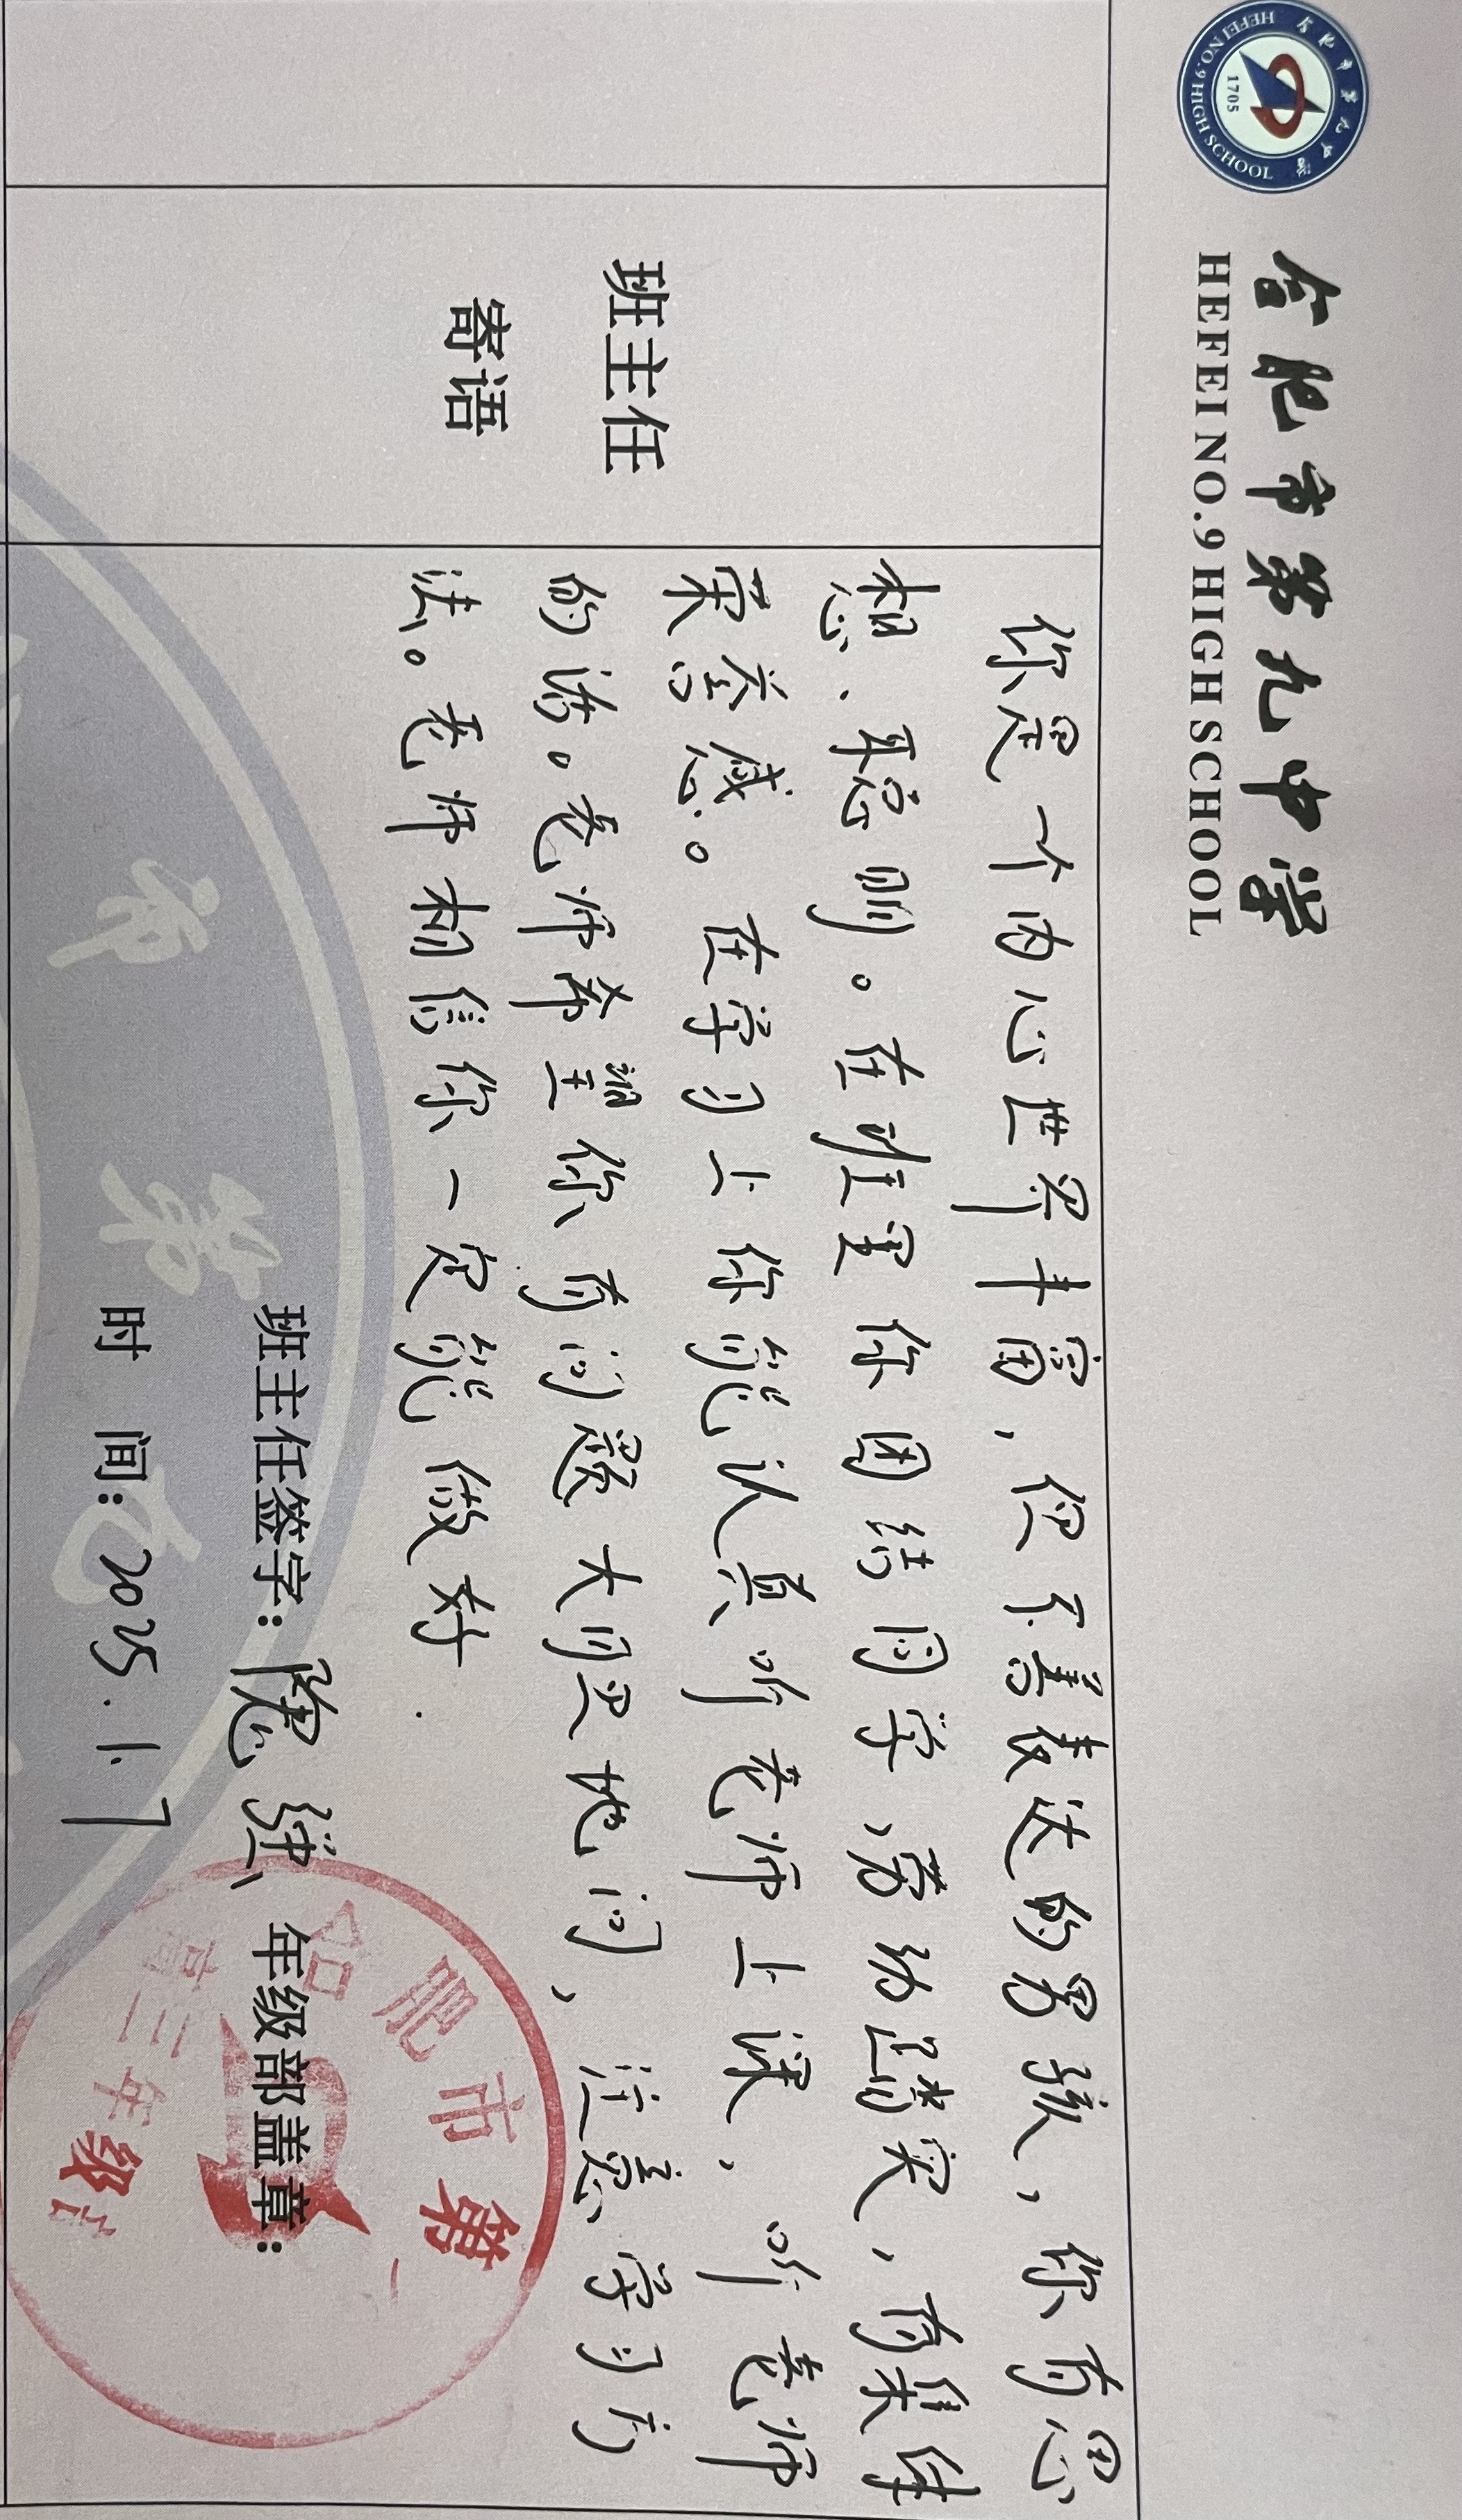 合肥市第九中学
HEFEI NO.9 HIGH SCHOOL
合肥市第九中学
1705
HEFEI NO.9 HIGH SCHOOL
班主任
寄语
你是一个内心世界丰富,但不善表达的男孩,你有思
想、聪明。在班里你团结同学,劳动踏实,有集体
荣誉感。在学习上你能认真听老师上课,听老师
的话。老师希望你有问题大胆地问,注意学习方
法。老师相信你一定能做好.
班主任签字:
年级部盖章:
时 间: 2025.1.7
合肥市第
高三年级
市第九